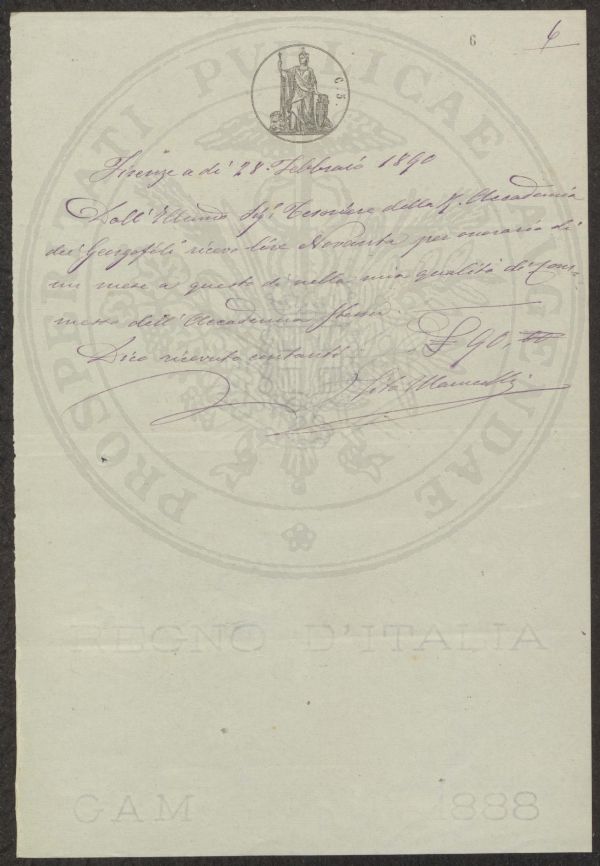 6
6
C. 5.
Firenze a dì 28. Febbraio 1890
Dall' Illmo. Sigr. Tesoriere della R. Accademia
dei Georgofili ricevo lire Novanta per onorario di
un mese a questo dì nella mia qualità di Com-
messo dell' Accademia stessa.
£ 90, 00
Dico ricevute contanti
PROSPERITATI PUBLICAE AUGENDAE
REGNO D'ITALIA
GAM 1888